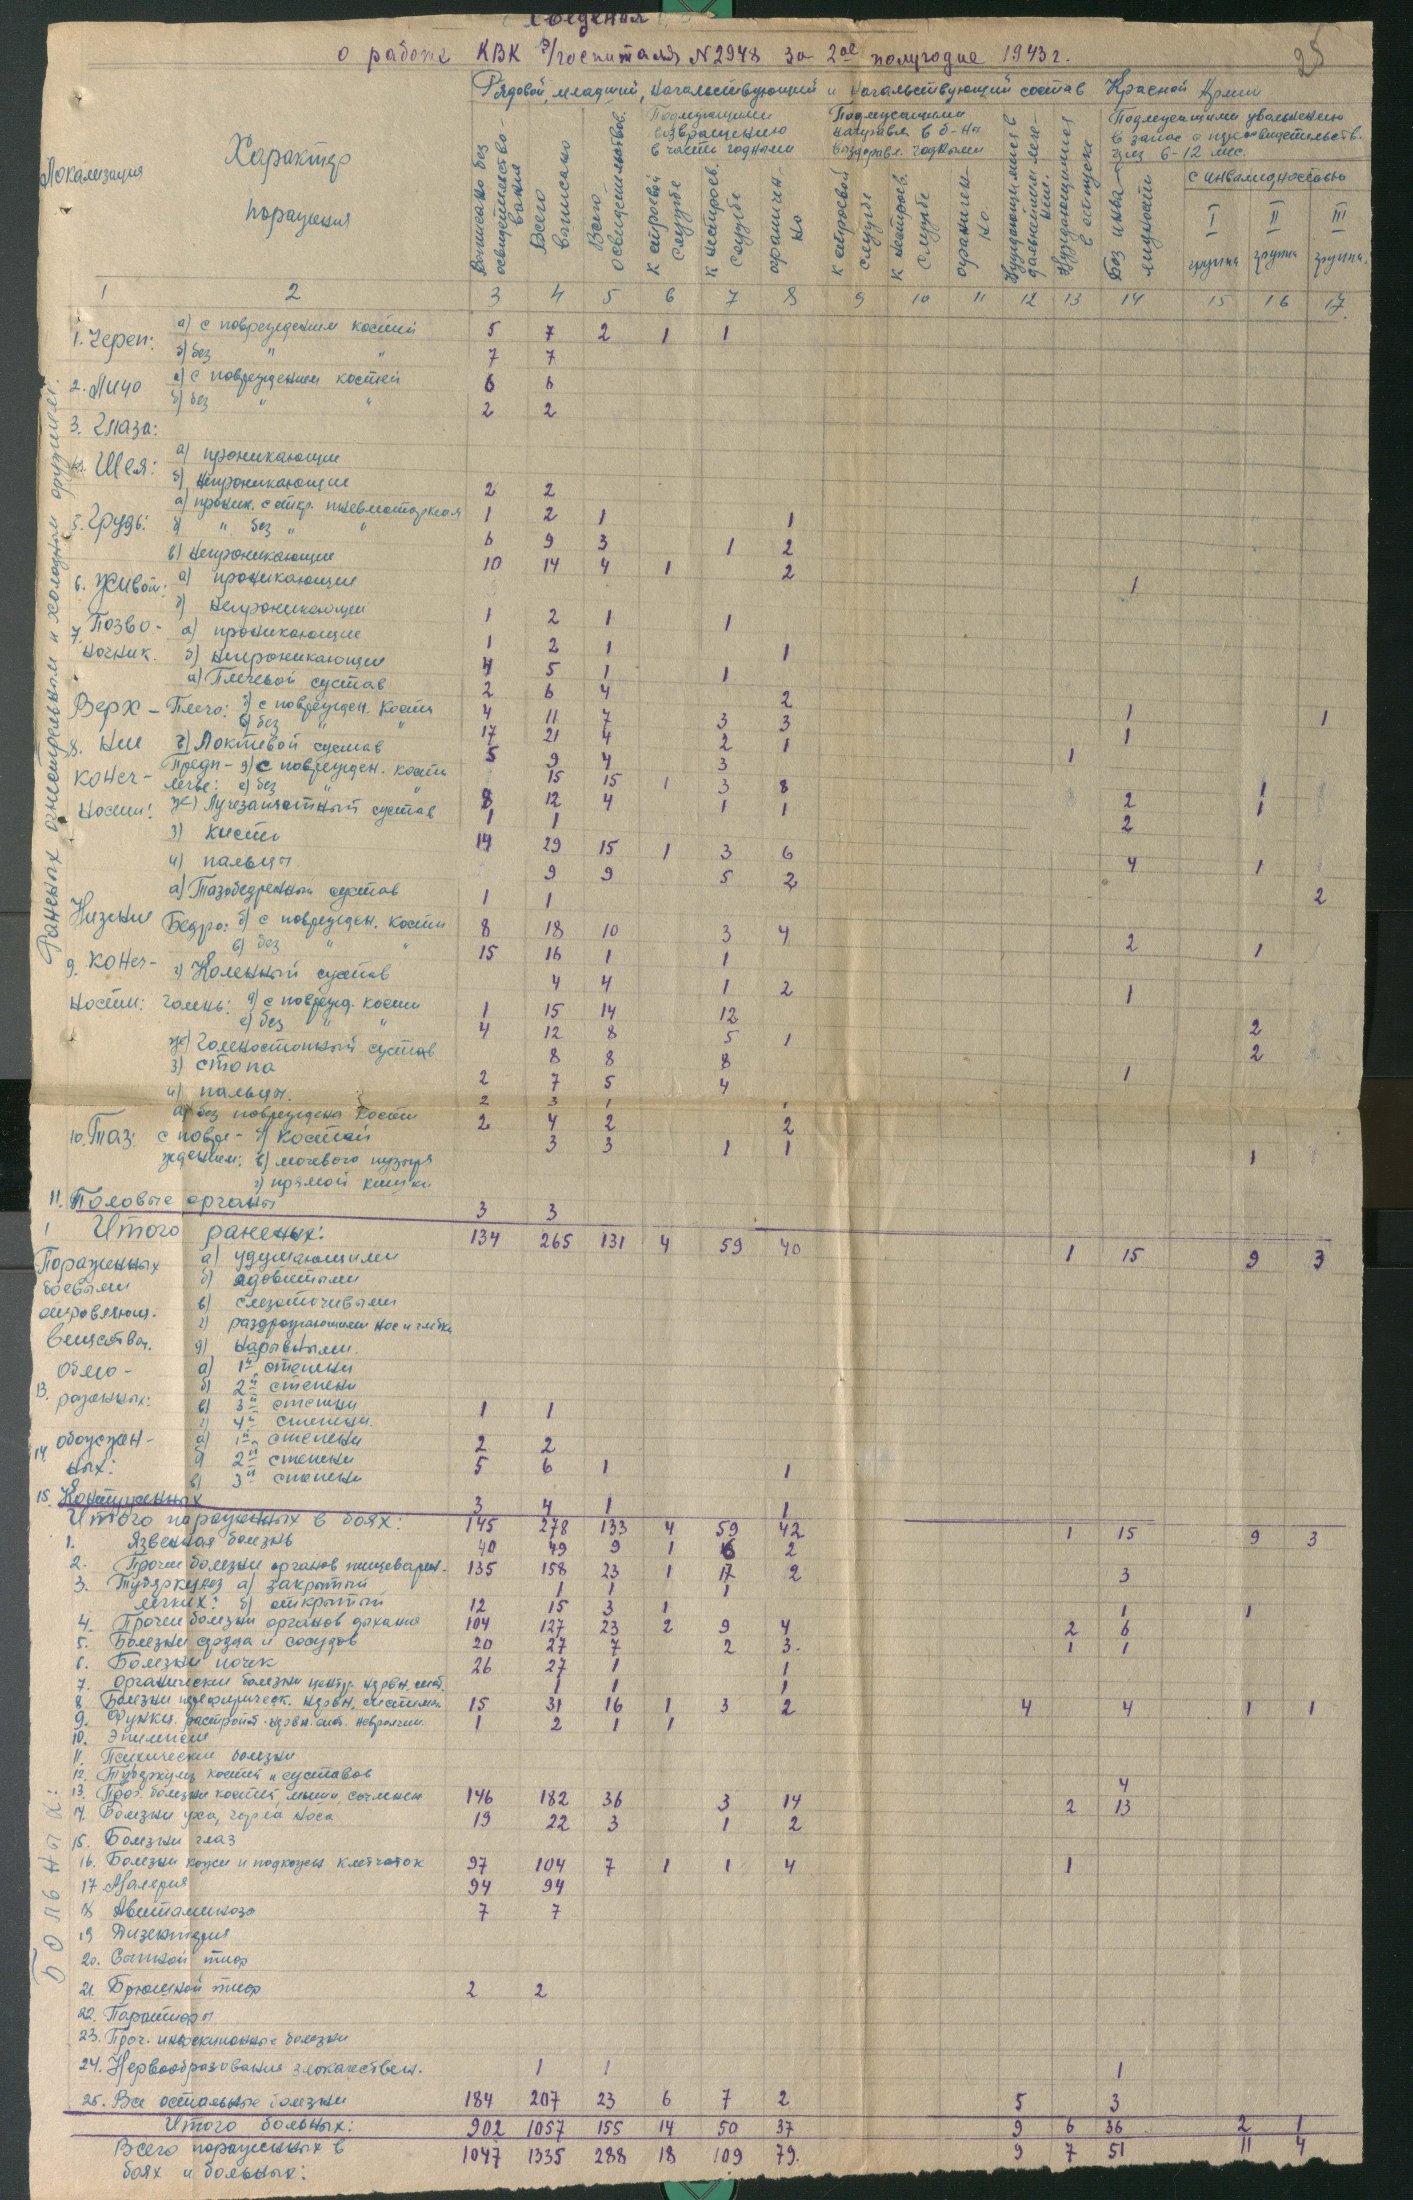 Сведения
о работе КВК э/госпиталя № 2948 за 2ое полугодие 1943 г.
25
Рядовой, младший, начальствующий и начальствующий состав Красной Армии
Локализация
Характер поражения
Выписано без освидетельствования
Всего выписано
Всего освидетельствов.
Подлежащими возвращению в части годными
к строевой службе
к нестроев. службе
ограничено
Подлежащими направл. в б-н выздоравл. годными
к строевой службе
к нестроев. службе
ограничено.
Нуждающимися в дальнейшем лечении.
Нуждающимися в отпуске
Подлежащими увольнению в запас с переосвидетельств. через 6-12 мес.
Без инвалидности
с инвалидностью
I группа
II группа
III группа.
1 2 3 4 5 6 7 8 9 10 11 12 13 14 15 16 17
Раненых огнестрельным и холодным оружием:
1. Череп: а) с повреждением костей 5 7 2 1 1
б) без " " 7 7
2. Лицо а) с повреждением костей 6 6
б) без " " 2 2
3. Глаза:
4. Шея: а) проникающие
б) непроникающие 2 2
5. Грудь: а) проник. с откр. пневмотораксом 1 2 1 1
б) " без " " 6 9 3 1 2
в) непроникающие 10 14 4 1 2
6. Живот: а) проникающие 1
б) непроникающие 1 2 1 1
7. Позвоночник. а) проникающие 1 2 1 1
б) непроникающие 4 5 1 1
8. Верхние конечности: а) Плечевой сустав 2 6 4 2
Плечо: б) с поврежден. кости 4 11 7 3 3 1 1
в) без " " 17 21 4 2 1 1
г) Локтевой сустав 5 9 4 3 1
Предплечье: д) с поврежден. кости 15 15 1 3 8 1
е) без " " 8 12 4 1 1 2 1
ж) Лучезапястный сустав 1 1 2
з) кисти 14 29 15 1 3 6
и) пальцы 9 9 5 2 4 1
9. Нижние конечности: а) Тазобедренный сустав 1 1 2
Бедро: б) с поврежден. кости 8 18 10 3 4
в) без " " 15 16 1 1 2 1
г) Коленный сустав 4 4 1 2
Голень: д) с поврежд. кости 1 15 14 12 1
е) без " " 4 12 8 5 1 2
ж) Голеностопный сустав 8 8 8 2
з) стопа 2 7 5 4 1
и) пальцы. 2 3 1 1
10. Таз: а) без повреждения кости 2 4 2 2
с повреждением: б) костей 3 3 1 1
в) мочевого пузыря 1
г) прямой кишки
11. Половые органы 3 3
Итого раненых: 134 265 131 4 59 40 1 15 9 3
Пораженных боевыми отравляющ. веществам.
а) удушающими
б) ядовитыми
в) слезоточивыми
г) раздражающими нос и глотку
д) нарывными.
13. Обмороженных: а) 1й степени
б) 2й степени
в) 3й степени
г) 4й степени. 1 1
14. обожженных: а) 1й степени
б) 2й степени 2 2
в) 3й степени 5 6 1 1
15. Контуженных 3 4 1 1
Итого пораженных в боях: 145 278 133 4 59 42 1 15 9 3
Больных:
1. Язвенная болезнь 40 49 9 1 6 2
2. Прочие болезни органов пищеварен. 135 158 23 1 17 2 3
3. Туберкулез легких: а) закрытый 1 1 1
б) открытый 12 15 3 1 1 1
4. Прочие болезни органов дыхания 104 127 23 2 9 4 2 6
5. Болезни сердца и сосудов 20 27 7 2 3. 1 1
6. Болезни почек 26 27 1 1
7. органические болезни центр. нервн. сист. 1 1 1
8. Болезни периферическ. нервн. системы 15 31 16 1 3 2 4 4 1 1
9. Функц. расстройст. нервн. сист. невралгии 1 2 1 1
10. Эпилепсия
11. Психические болезни
12. Туберкулез костей и суставов 4
13. Проч. болезни костей, мышц, сочленен 146 182 36 3 14 2 13
14. Болезни уха, горла носа 19 22 3 1 2
15. Болезни глаз
16. Болезни кожи и подкожн клетчаток 97 104 7 1 1 4 1
17 Малярия 94 94
18 Авитаминозы 7 7
19 Дизентерия
20. Сыпной тиф
21. Брюшной тиф 2 2
22. Паратифы
23. Проч. инфекционные болезни
24. Новообразования злокачествен. 1 1 1
25. Все остальные болезни 184 207 23 6 7 2 5 3
Итого больных: 902 1057 155 14 50 37 9 6 36 2 1
Всего пораженных в боях и больных: 1047 1335 288 18 109 79. 9 7 51 11 4